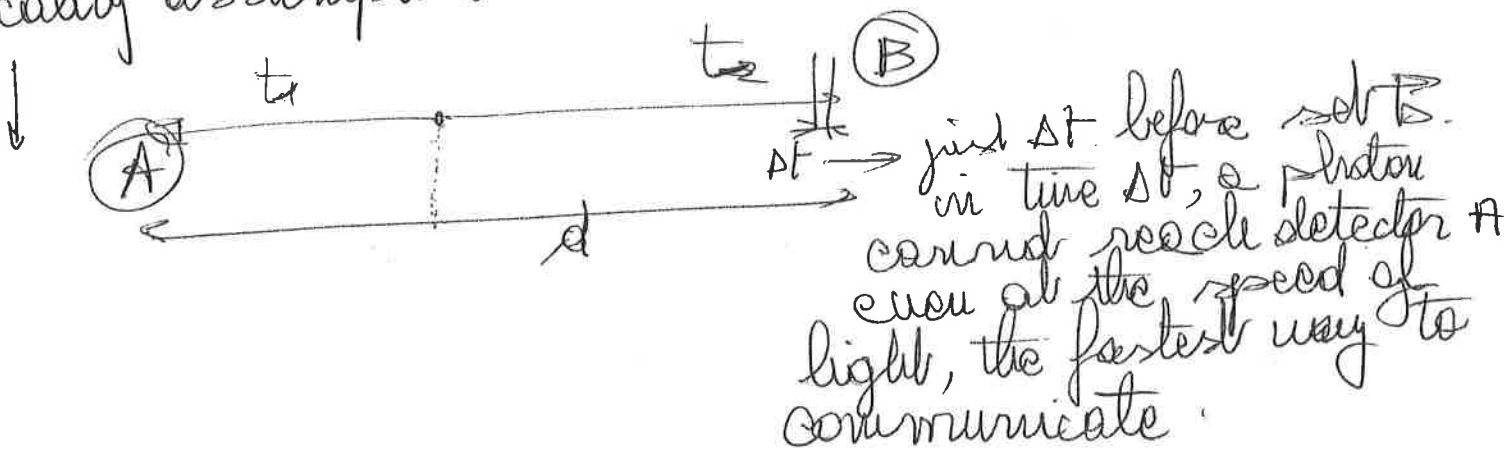 t₁ t₂ B
A Δt → just Δt before set B.
in time Δt, a photon
cannot reach detector A
d
even at the speed of
light, the fastest way to
communicate.